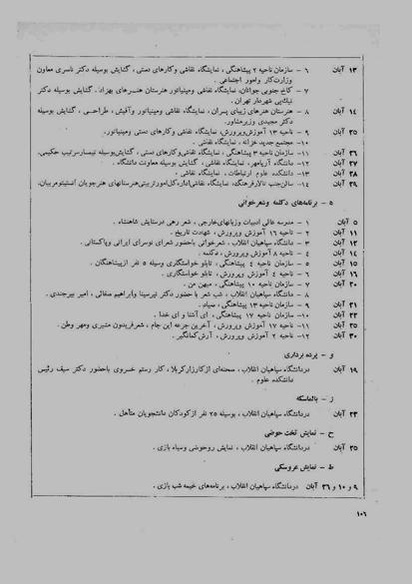 ۱۳ آبان ۶ – سازمان ناحیه ۲ پیشاهنگی، نمایشگاه نقاشی وکارهای دستی، گشایش بوسیله دکتر ناصری معاون
وزارت کار وامور اجتماعی.
۷ – کاخ جنوبی جوانان، نمایشگاه نقاشی ومینیاتور هنرستان هنرهای بهزاد. گشایش بوسیله دکتر
نیک‌پی شهردار تهران.
۱۴ آبان ۸ – هنرستان هنرهای زیبای پسران، نمایشگاه نقاشی ومینیاتور وآفیش، طراحی، گشایش بوسیله
دکتر مجیدی وزیر مشاور.
۲۵ آبان ۹ – ناحیه ۱۳ آموزش‌وپرورش، نمایشگاه نقاشی وکارهای دستی ومینیاتور.
۱۰ – مجتمع جدید خزانه، نمایشگاه نقاشی.
۲۶ آبان ۱۱ – سازمان ناحیه ۳ پیشاهنگی، نمایشگاه نقاشی وکارهای دستی، گشایش بوسیله تیمسار سرتیپ حکیمی.
۲۷ آبان ۱۲ – دانشگاه آریامهر، نمایشگاه نقاشی، گشایش بوسیله معاونت دانشگاه.
۲۸ آبان ۱۳ – دانشکده علوم ارتباطات، نمایشگاه نقاشی.
۲۹ آبان ۱۴ – سالن‌جنب تالار فرهنگ، نمایشگاه نقاشی
ه – برنامه‌های دکلمه وشعرخوانی
۵ آبان ۱ – مدرسه عالی ادبیات وزبانهای خارجی، شعر رهی درستایش شاهنشاه.
۱۱ آبان ۲ – ناحیه ۱۶ آموزش وپرورش، شهادت تاریخ.
۱۲ آبان ۳ – دانشگاه سپاهیان انقلاب، شعرخوانی باحضور شعرای نوسرای ایرانی وپاکستانی.
۱۴ آبان ۴ – ناحیه ۸ آموزش وپرورش، دکلمه.
۱۵ آبان ۵ – سازمان ناحیه ۴ پیشاهنگی، تابلو خواستگاری وسیله ۵ نفر ازپیشاهنگان.
۱۶ آبان ۶ – ناحیه ۴ آموزش وپرورش، تابلو خواستگاری.
۲۰ آبان ۷ – سازمان ناحیه ۱۰ پیشاهنگی، میهن من.
۸ – دانشگاه سپاهیان انقلاب، شب شعر باحضور دکتر تیرسینا وابراهیم صفائی، امیر بیرجندی.
۲۱ آبان ۹ – سازمان ناحیه ۱۳ پیشاهنگی، صیاد.
۲۲ آبان ۱۰ – سازمان ناحیه ۱۷ پیشاهنگی، ای آشنا و ای خدا.
۲۵ آبان ۱۱ – ناحیه ۱۷ آموزش وپرورش، آخرین جرعه این جام، شعرفریدون مشیری ومهر وطن.
۳۰ آبان ۱۲ – ناحیه ۲ آموزش وپرورش، آرش کمانگیر.
و – پرده برداری
۱۹ آبان دردانشگاه سپاهیان انقلاب، صحنه‌ای ازکارزارکربلا، کار رستم خسروی باحضور دکتر سیف رئیس
دانشکده علوم.
ز – بالماسکه
۲۳ آبان دردانشگاه سپاهیان انقلاب، بوسیله ۲۵ نفر ازکودکان دانشجویان متأهل.
ح – نمایش تخت حوضی
۲۵ آبان دردانشگاه سپاهیان انقلاب، نمایش روحوضی وسیاه بازی.
ط – نمایش عروسکی
۹ و ۱۰ و ۲۶ آبان دردانشگاه سپاهیان انقلاب، برنامه‌های خیمه شب بازی.
۱۰۶